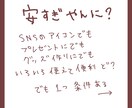 安すぎやんに?
SNSのアイコンでも
プレゼントにでも
グッズ作りにでも
いろいろ使えて便利で?
でも1つ条件ある
→